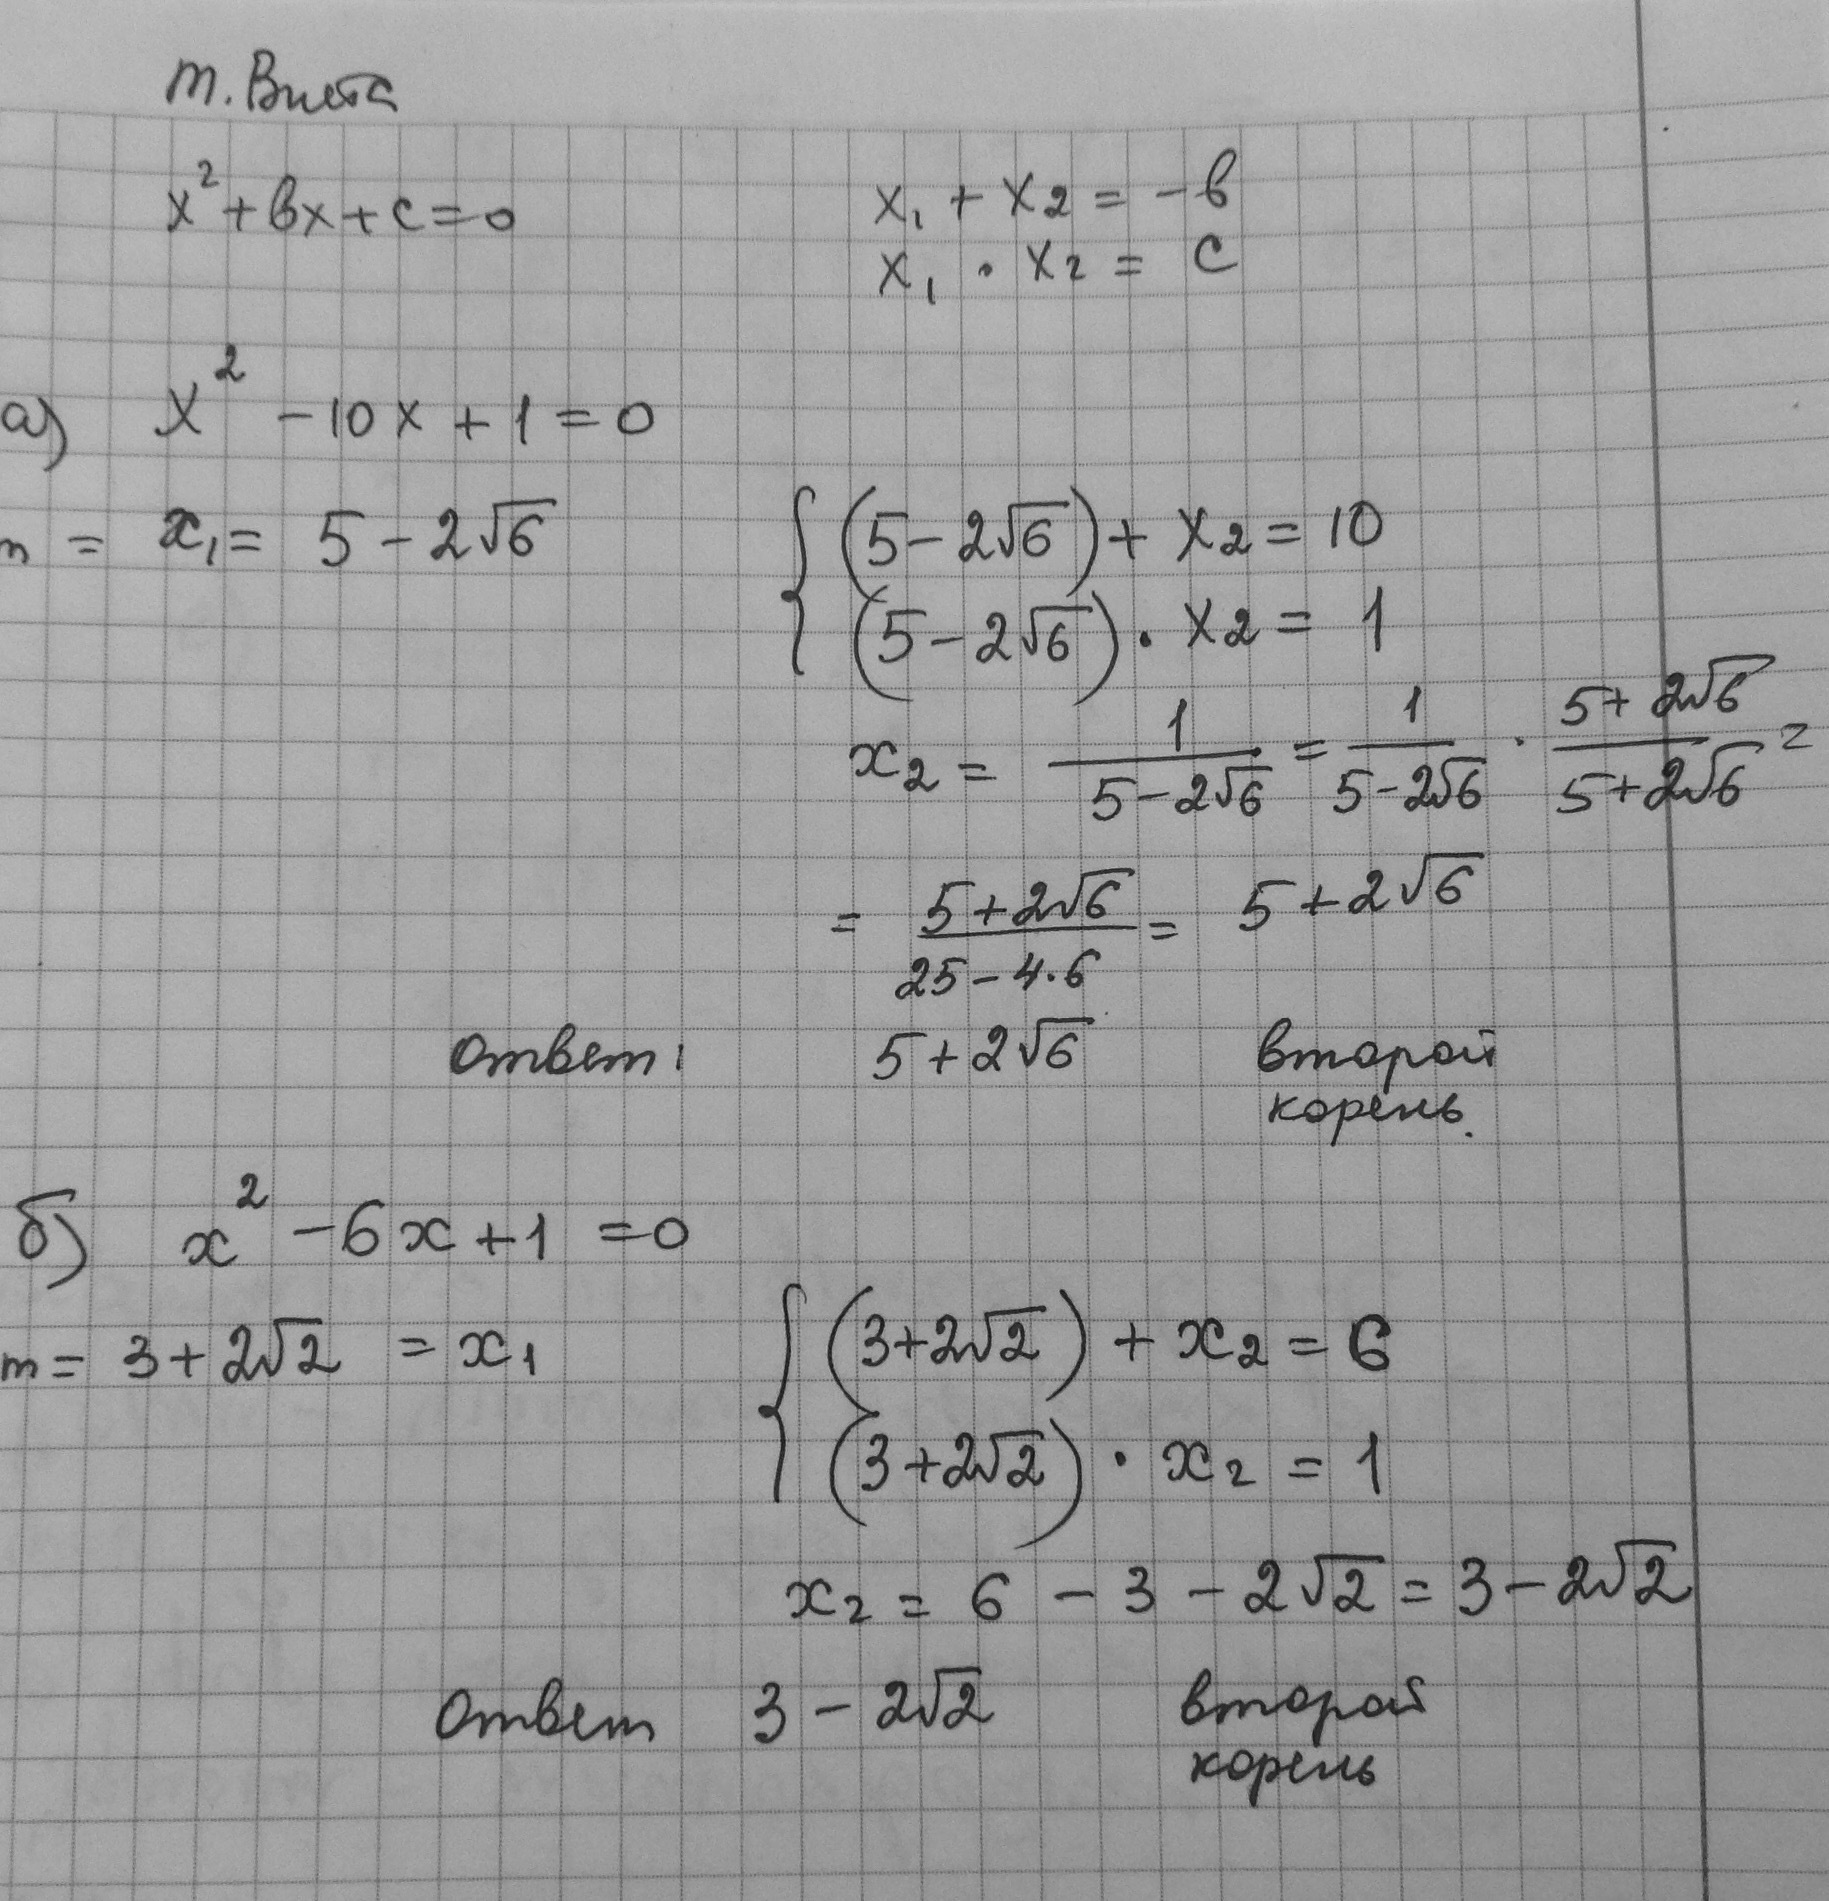 т. Виета
x² + bx + c = 0
x₁ + x₂ = -b
x₁ · x₂ = c
а) x² - 10x + 1 = 0
m = x₁ = 5 - 2√6
{ (5 - 2√6) + x₂ = 10
(5 - 2√6) · x₂ = 1
x₂ = 1/(5 - 2√6) = 1/(5 - 2√6) · (5 + 2√6)/(5 + 2√6) =
= (5 + 2√6)/(25 - 4·6) = 5 + 2√6
Ответ: 5 + 2√6 второй
корень.
б) x² - 6x + 1 = 0
m = 3 + 2√2 = x₁
{ (3 + 2√2) + x₂ = 6
(3 + 2√2) · x₂ = 1
x₂ = 6 - 3 - 2√2 = 3 - 2√2
Ответ 3 - 2√2 второй
корень